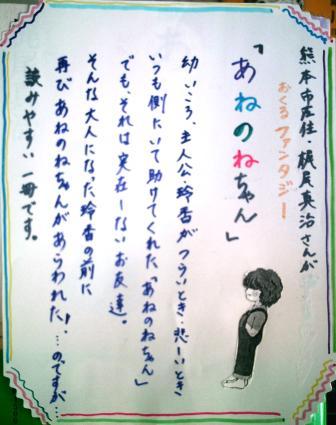 熊本市在住・梶尾真治さんが
おくるファンタジー
「あねのねちゃん」
幼いころ、主人公・玲香がつらいとき悲しいとき
いつも側にいて助けてくれた「あねのねちゃん」
でも、それは実在しないお友達。
そんな大人になった玲香の前に
再びあねのねちゃんがあらわれた!…のですが…
読みやすい一冊です。